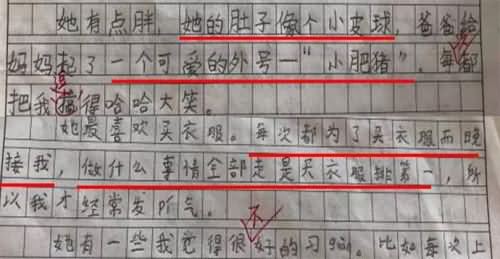 她有点胖，她的肚子像个小皮球，爸爸给
妈妈起了一个可爱的外号—"小肥猪"，每都
把我搞得哈哈大笑。
她最喜欢买衣服。每次都为了买衣服而晚
接我，做什么事请全部走是买衣服排第一，所
以我才经常发所气。
不
她有一些我觉得很好的习guan。比如每次上